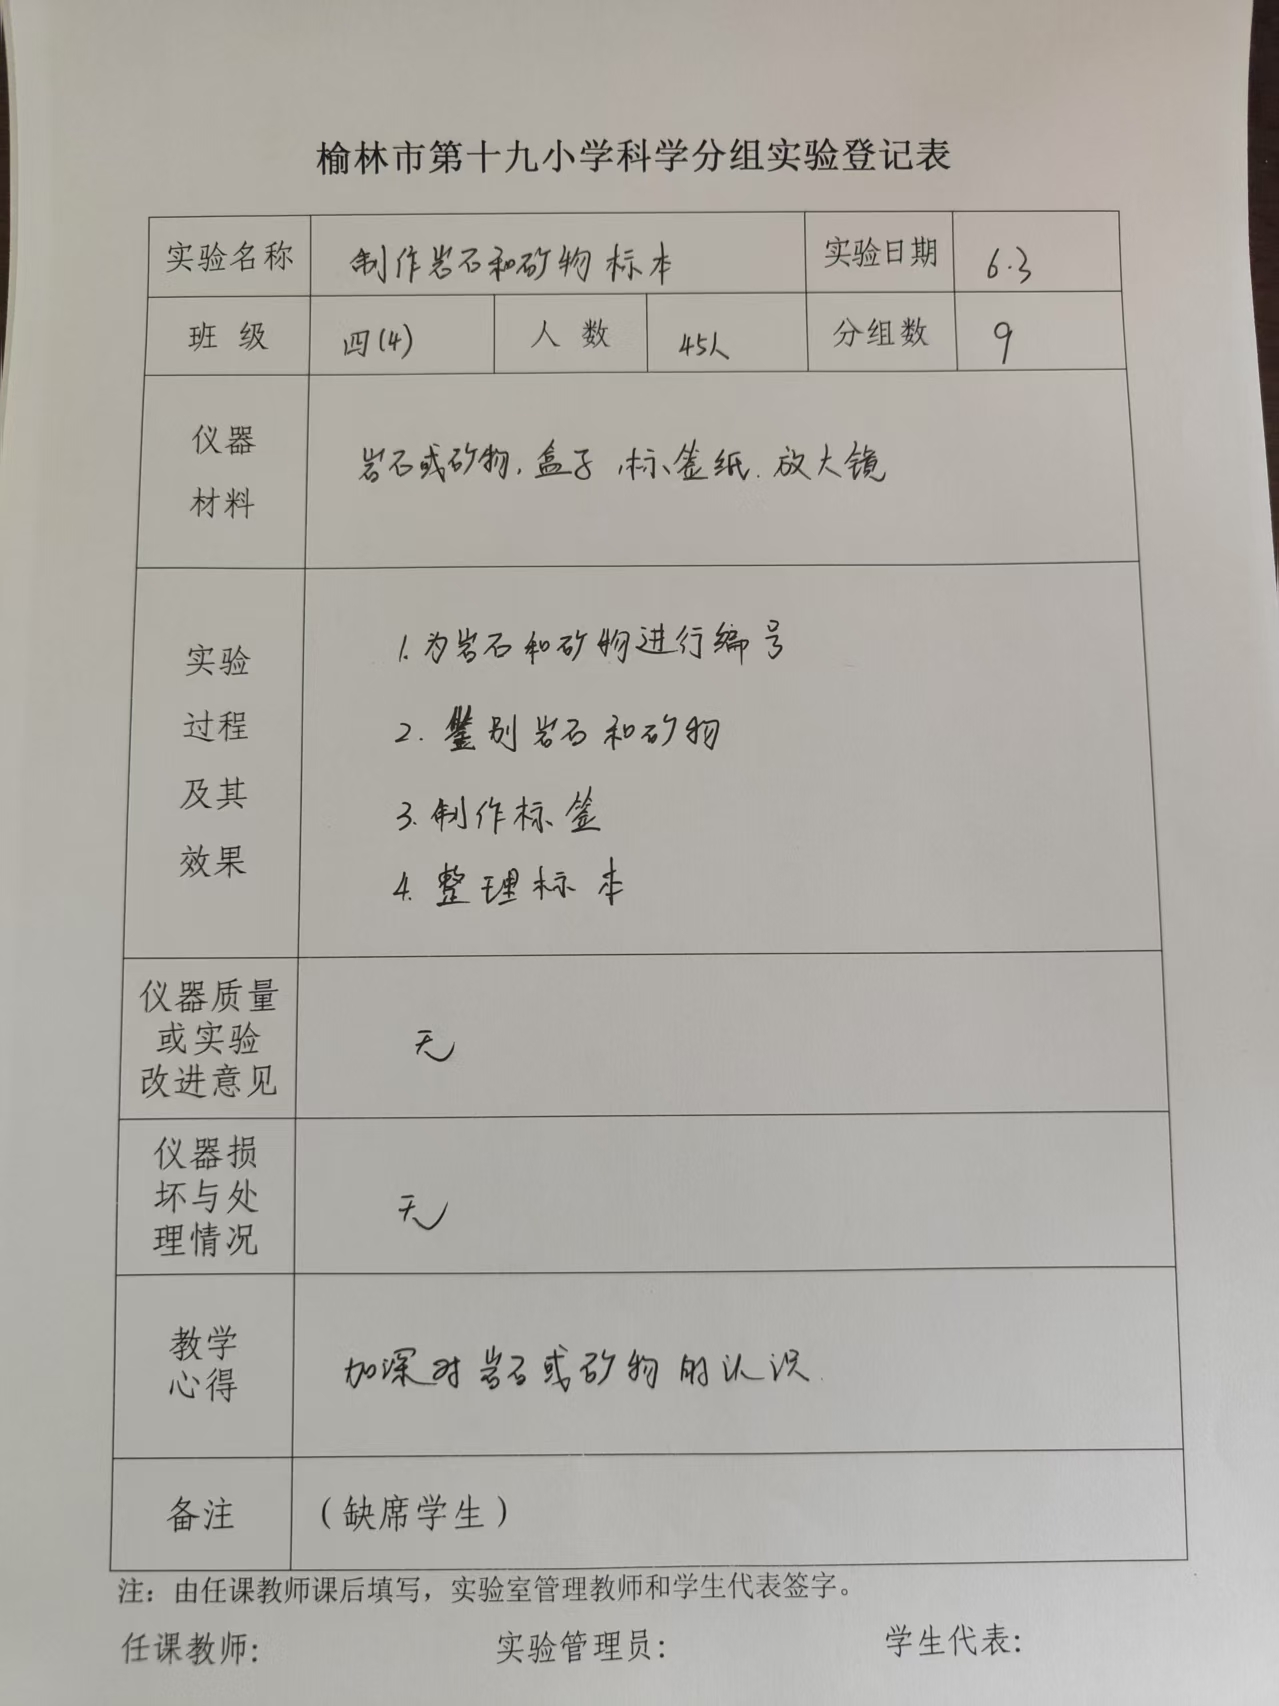 榆林市第十九小学科学分组实验登记表
实验名称 制作岩石和矿物标本 实验日期 6.3
班 级 四(4) 人 数 45人 分组数 9
仪器
材料
岩石或矿物,盒子,标签纸.放大镜
实验
过程
及其
效果
1.为岩石和矿物进行编号
2.鉴别岩石和矿物
3.制作标签
4.整理标本
仪器质量
或实验
改进意见
无
仪器损
坏与处
理情况
无
教学
心得
加深对岩石或矿物的认识.
备注 (缺席学生)
注：由任课教师课后填写，实验室管理教师和学生代表签字。
任课教师: 实验管理员: 学生代表: